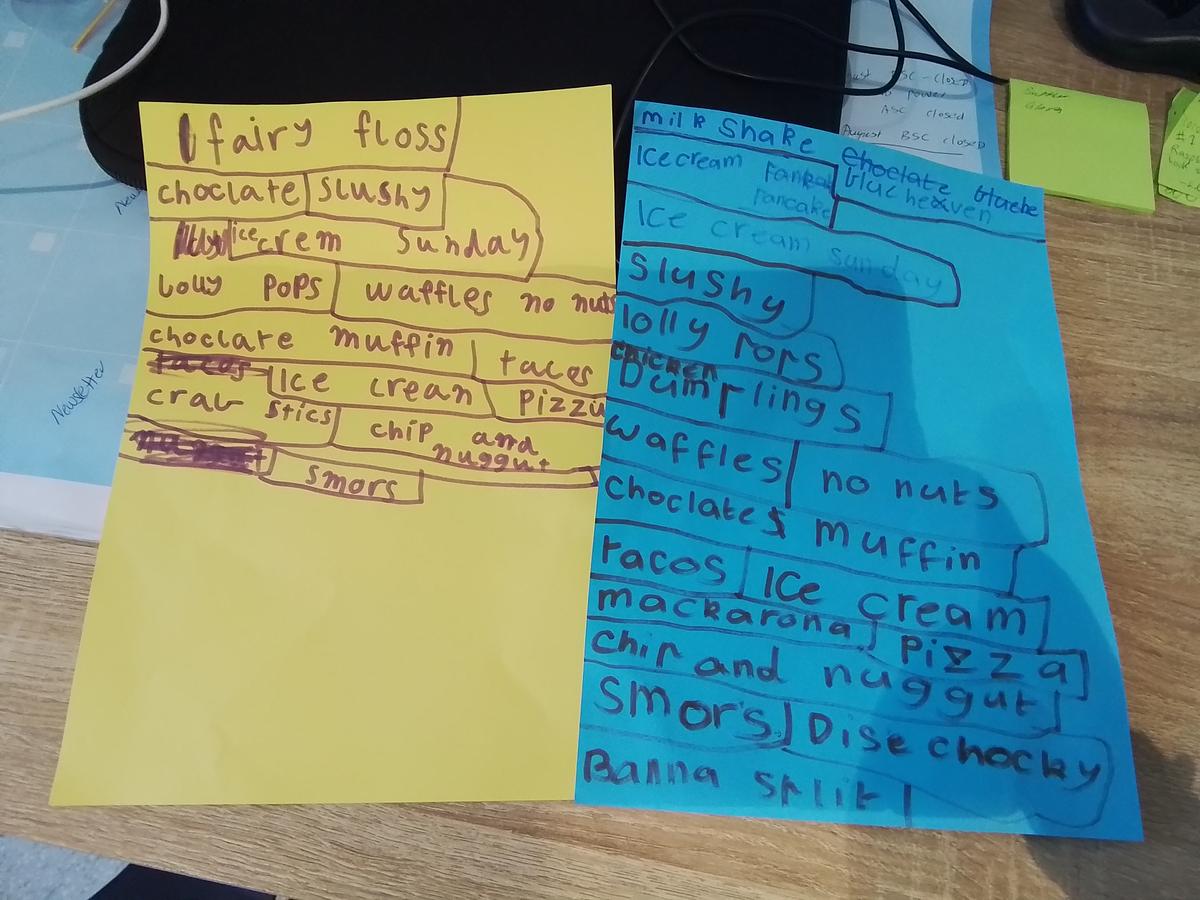 fairy floss
choclate slushy
icecrem sunday
lolly pops waffles no nuts
choclate muffin tacos
tacos Ice crean pizzu
crab stics chip and
nuggut
smors
milk Shake Choclate
Ice cream pankak
pancake
Ice cream sunday
Slushy
lolly pops
chicken
Dumplings
waffles no nuts
choclates muffin
tacos Ice cream
mackarona pizza
chip and nuggut
smors Dise chocky
Banna split
Newsletter
BSC - closed
power
ASC closed
August BSC closed